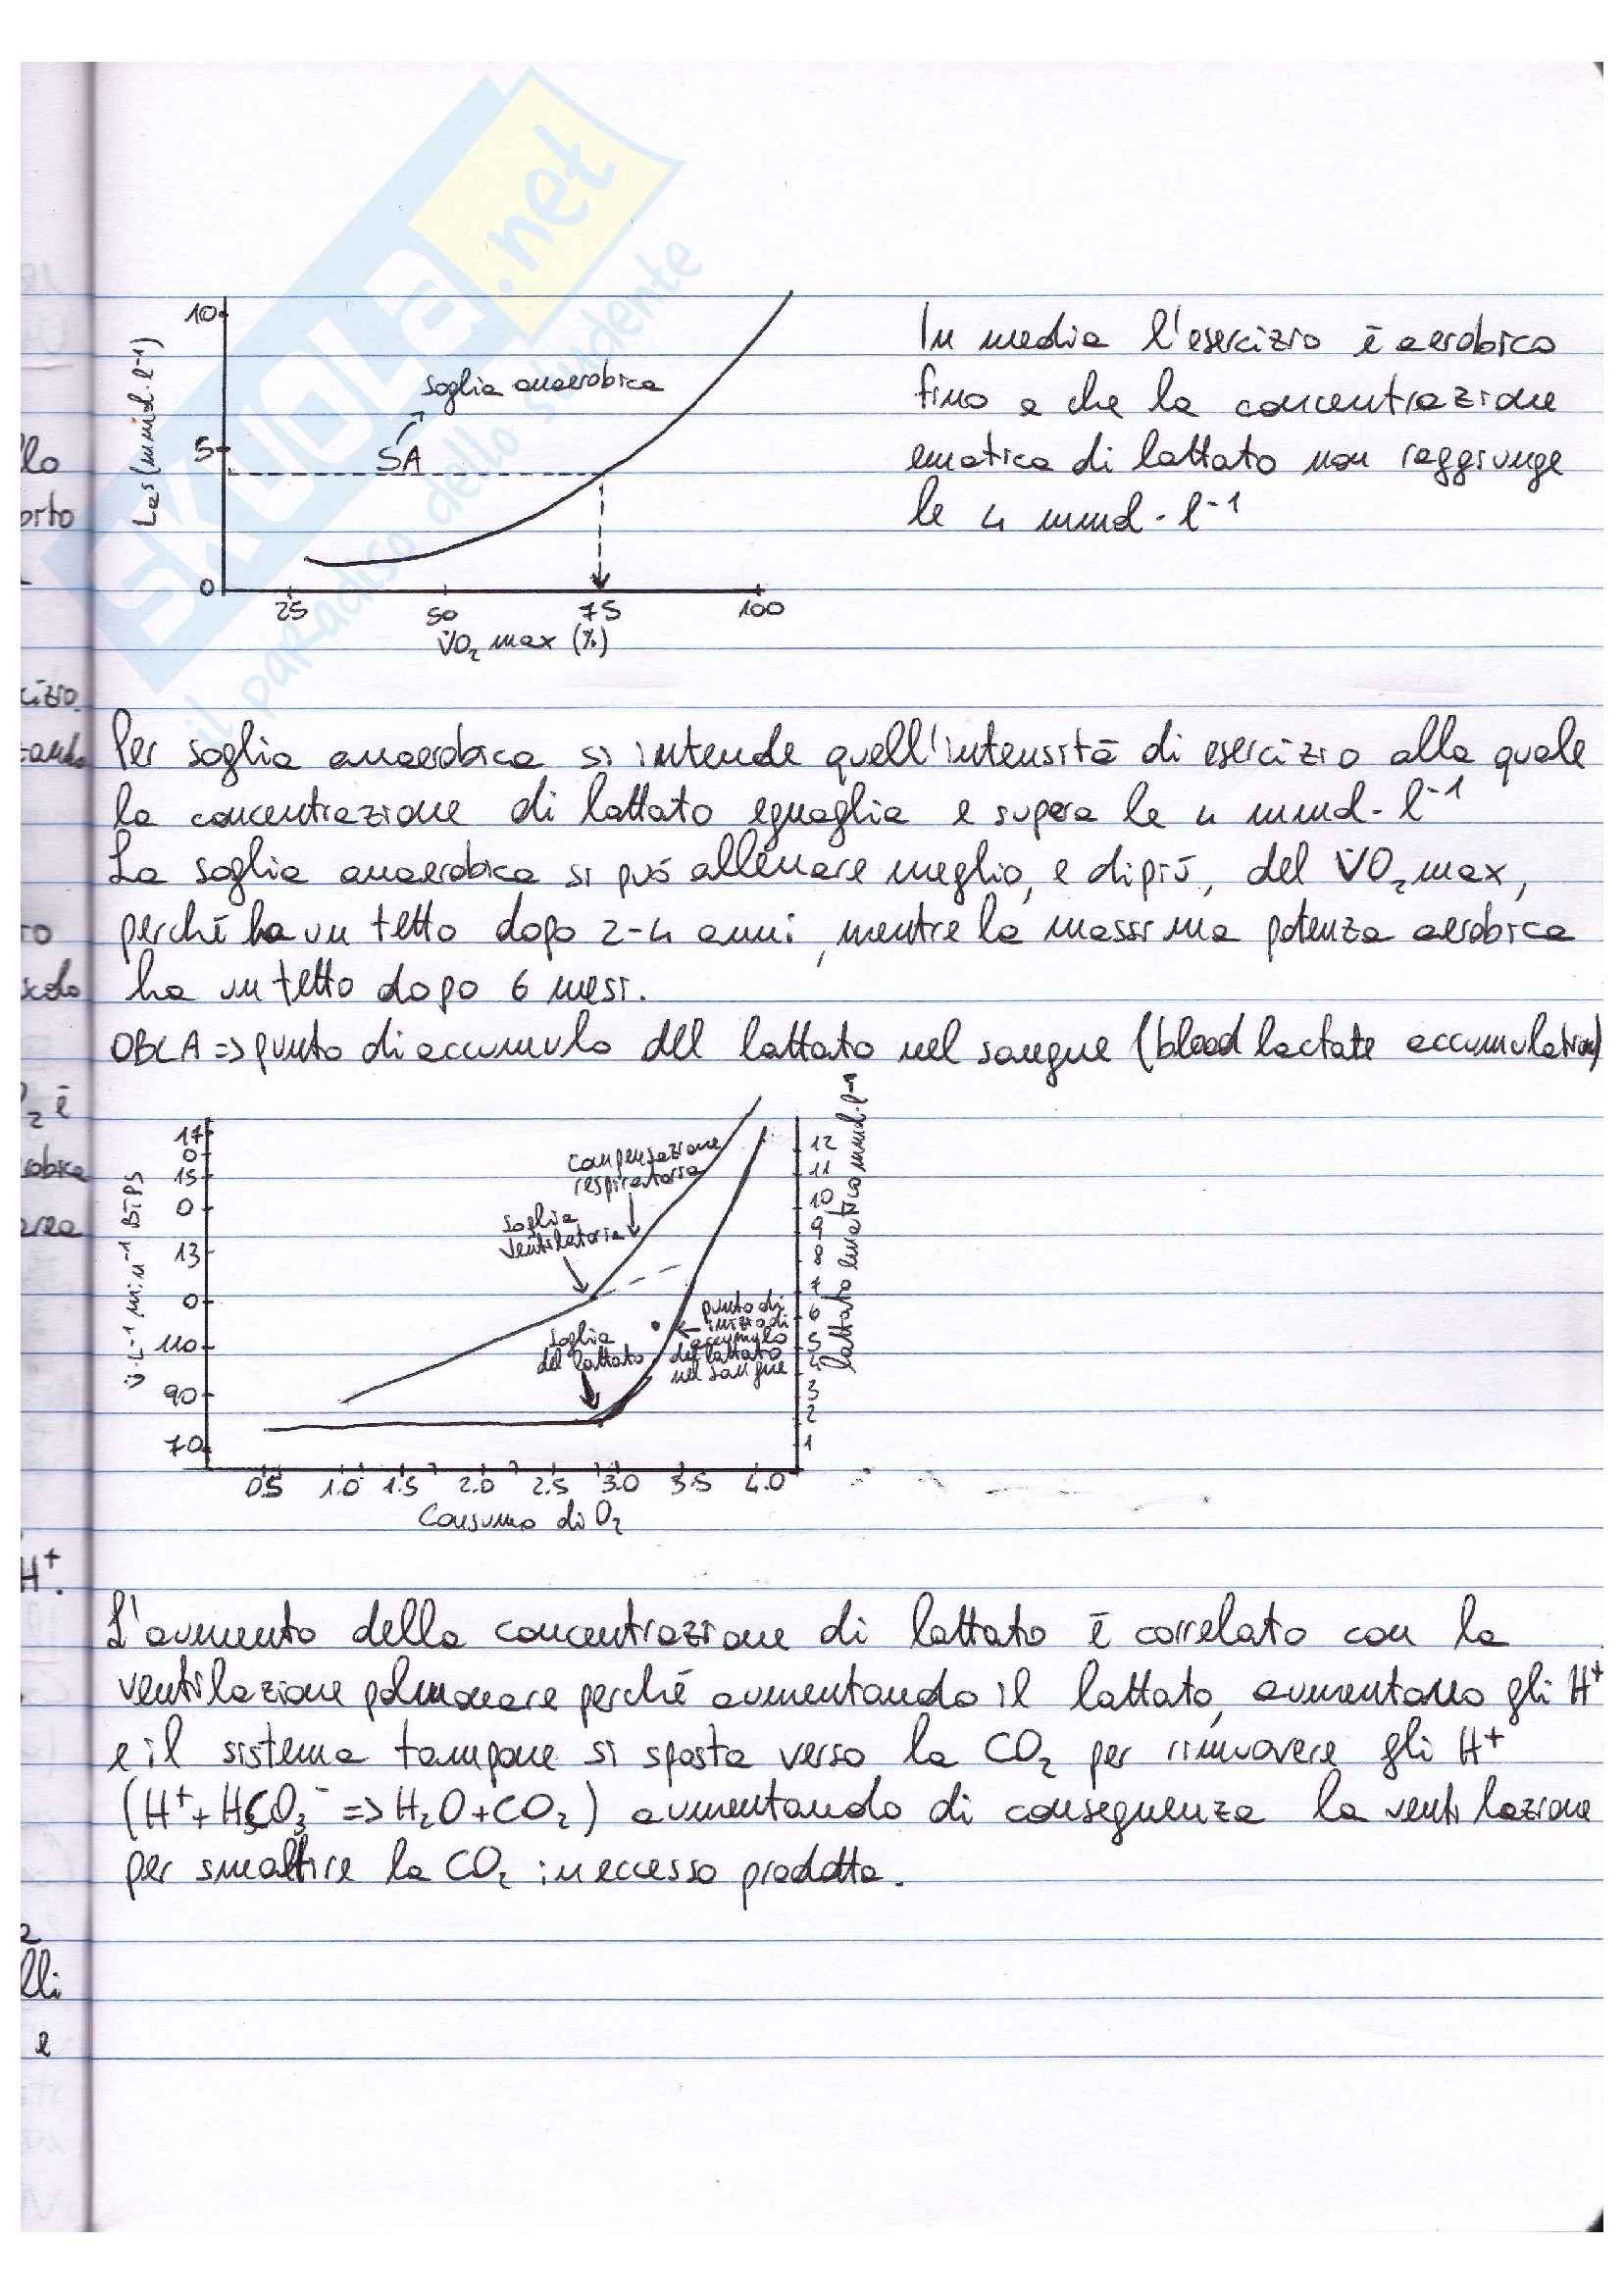 SKUOLA.net
il paradiso dello studente
10
5
0
Las (mmol·l-1)
soglia anaerobica
SA
25 50 75 100
V̇O₂ max (%)
In media l'esercizio è aerobico
fino a che la concentrazione
ematica di lattato non raggiunge
le 4 mmol·l-1
Per soglia anaerobica si intende quell'intensità di esercizio alla quale
la concentrazione di lattato eguaglia e supera le 4 mmol·l-1
La soglia anaerobica si può allenare meglio, e di più, del V̇O₂max,
perché ha un tetto dopo 2-4 anni, mentre la massima potenza aerobica
ha un tetto dopo 6 mesi.
OBLA => punto di accumulo del lattato nel sangue (blood lactate accumulation)
17
0
15
0
13
0
110
90
70
V̇·L-1 min-1 BTPS
compensazione
respiratoria
soglia
ventilatoria
soglia
del lattato
punto di
inizio di
accumulo
del lattato
nel sangue
12
11
10
9
8
7
6
5
4
3
2
1
lattato ematico mmol·l-1
0.5 1.0 1.5 2.0 2.5 3.0 3.5 4.0
Consumo di O₂
L'aumento della concentrazione di lattato è correlato con la
ventilazione polmonare perché aumentando il lattato, aumentano gli H⁺
e il sistema tampone si sposta verso la CO₂ per rimuovere gli H⁺
(H⁺ + HCO₃⁻ => H₂O + CO₂) aumentando di conseguenza la ventilazione
per smaltire la CO₂ in eccesso prodotta.